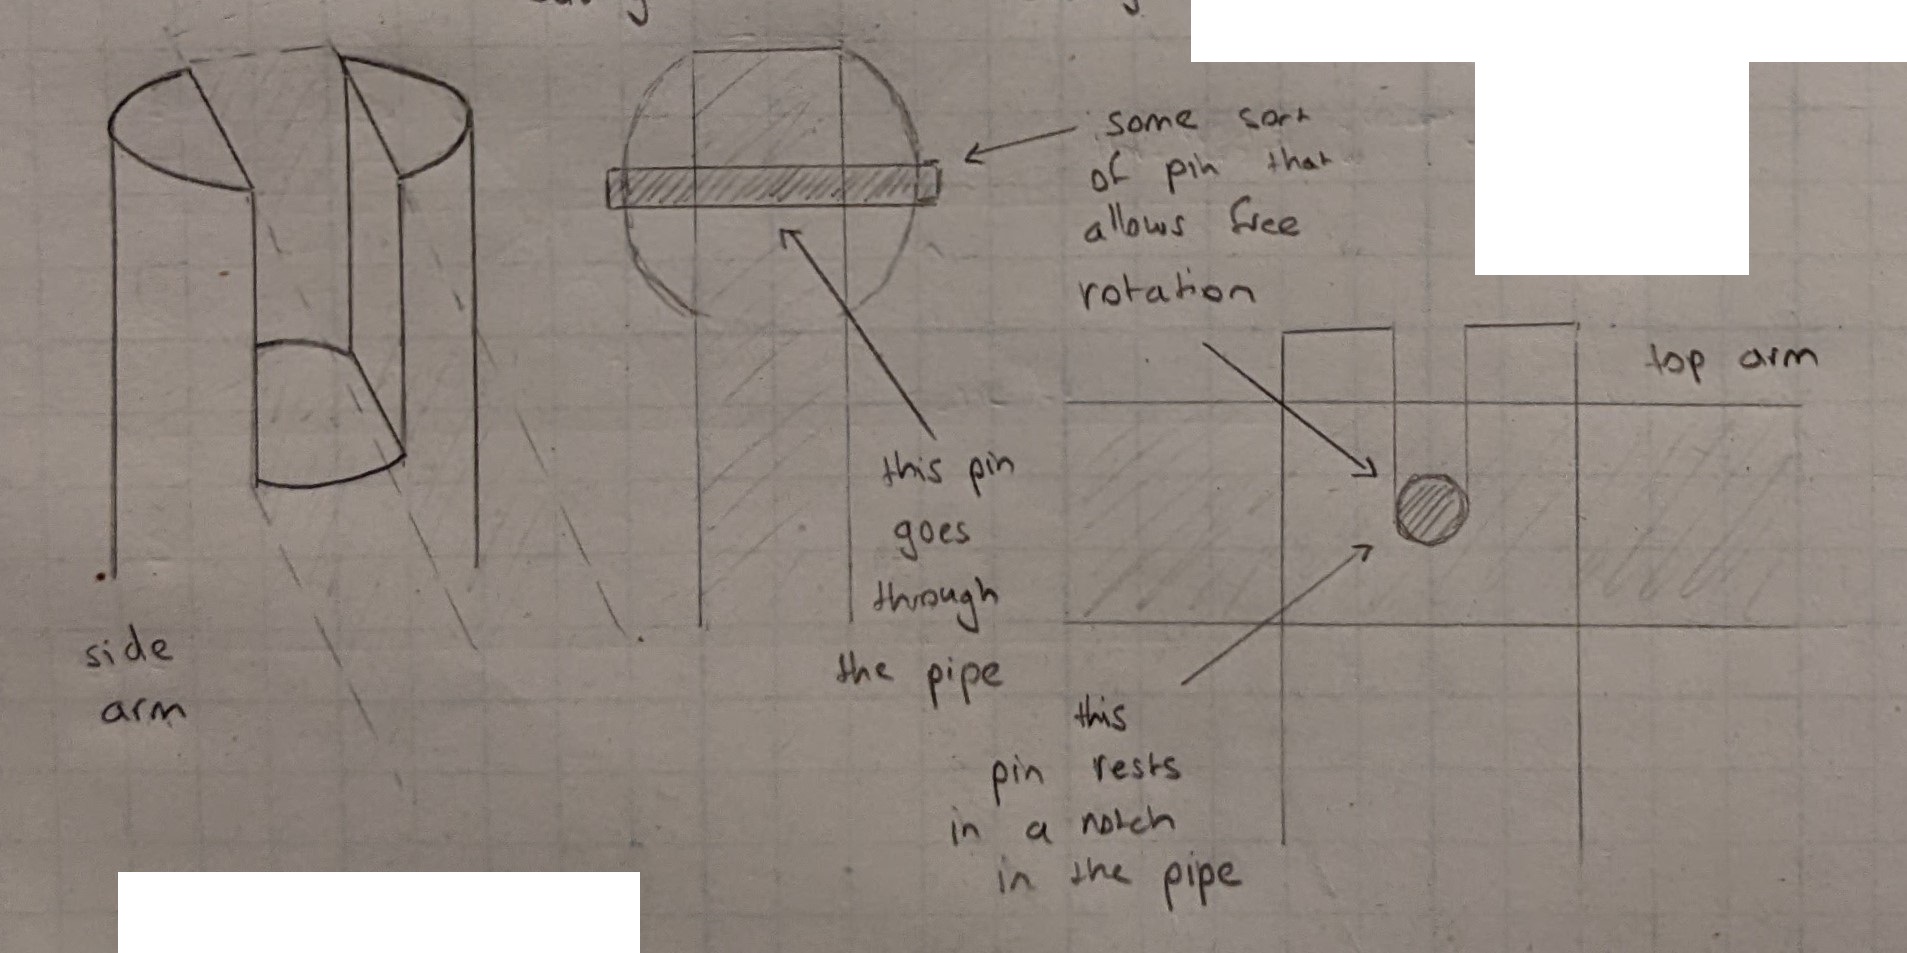 some sort
of pin that
allows free
rotation
top arm
this pin
goes
through
the pipe
side
arm
this
pin rests
in a notch
in the pipe